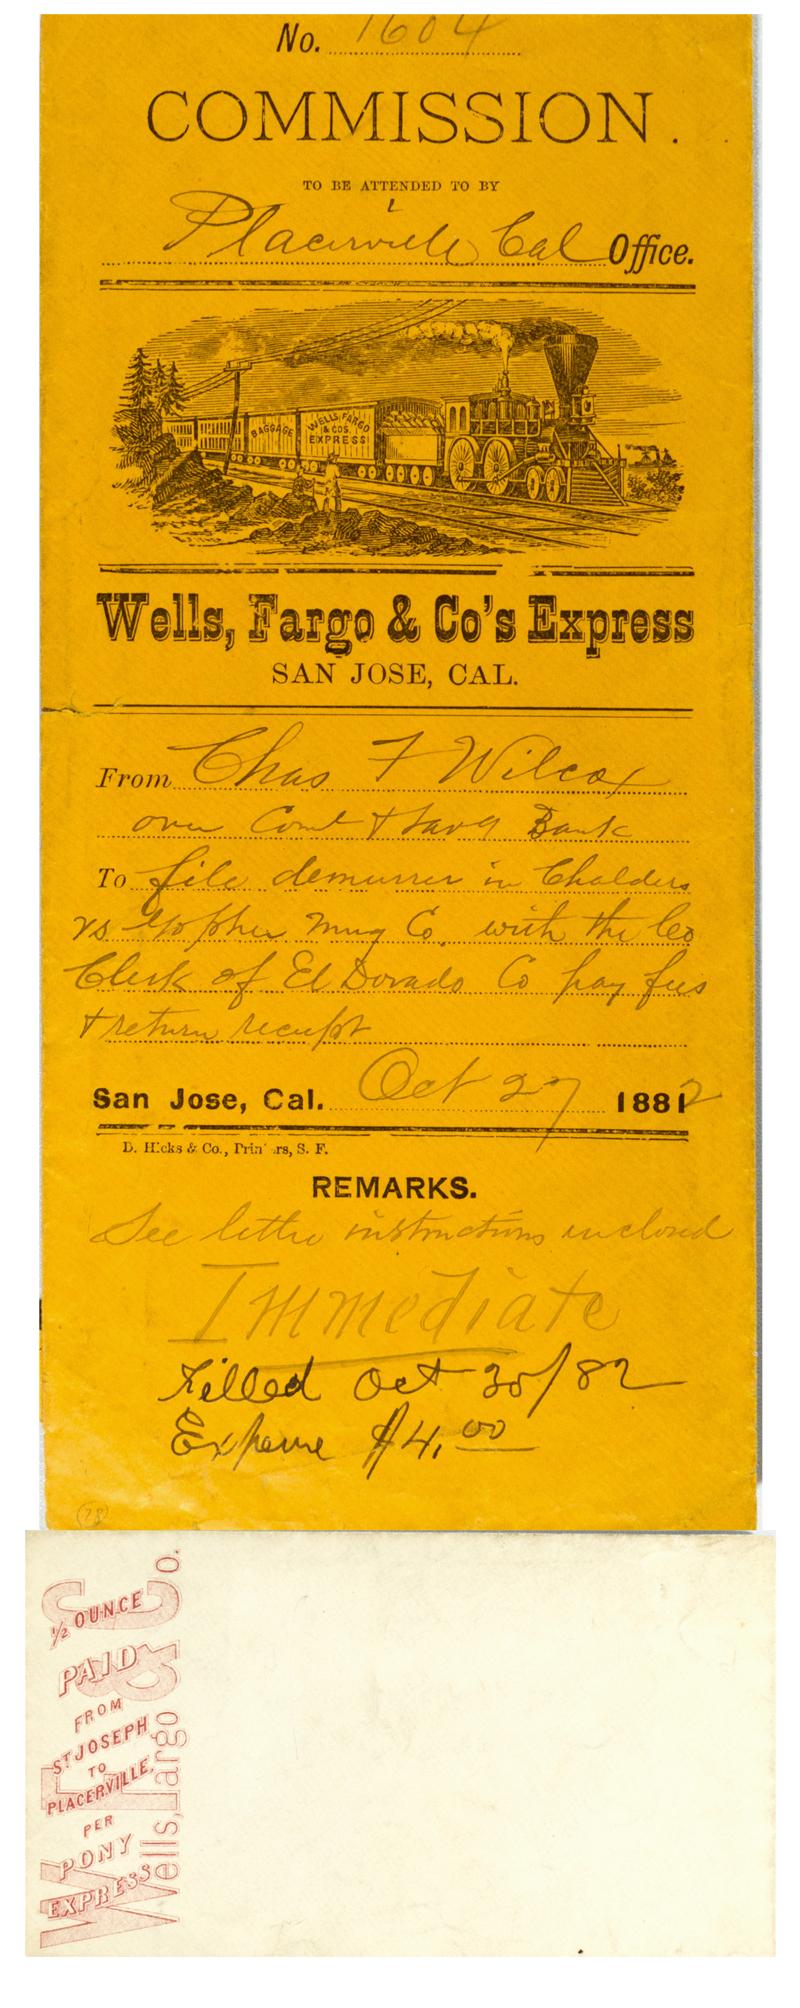 No. 1604
COMMISSION.
TO BE ATTENDED TO BY
Placerville Cal Office.
BAGGAGE
WELLS, FARGO
& CO'S.
EXPRESS
Wells, Fargo & Co's Express
SAN JOSE, CAL.
From Chas F Wilcox
over Coml & Savg Bank
To file demurrer in Chalders
vs Gopher Mng Co. with the Co
Clerk of El Dorado Co pay fees
& return receipt
San Jose, Cal. Oct 27 1882
D. Hicks & Co., Printers, S. F.
REMARKS.
See letter instructions inclosed
Immediate
Filled Oct 30/82
Expense $4.00
(78)
Wells, Fargo & Co.
½ OUNCE
PAID
FROM
ST JOSEPH
TO
PLACERVILLE.
PER
PONY
EXPRESS